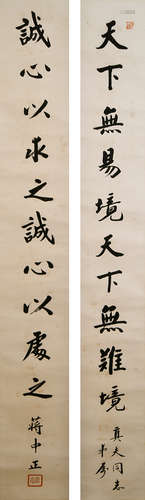 天下無易境天下無難境
真夫同志
誠心以求之誠心以處之
蔣中正